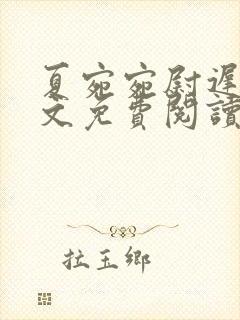 夏宛宛尉遲
文免費閱讀
拉玉鄉